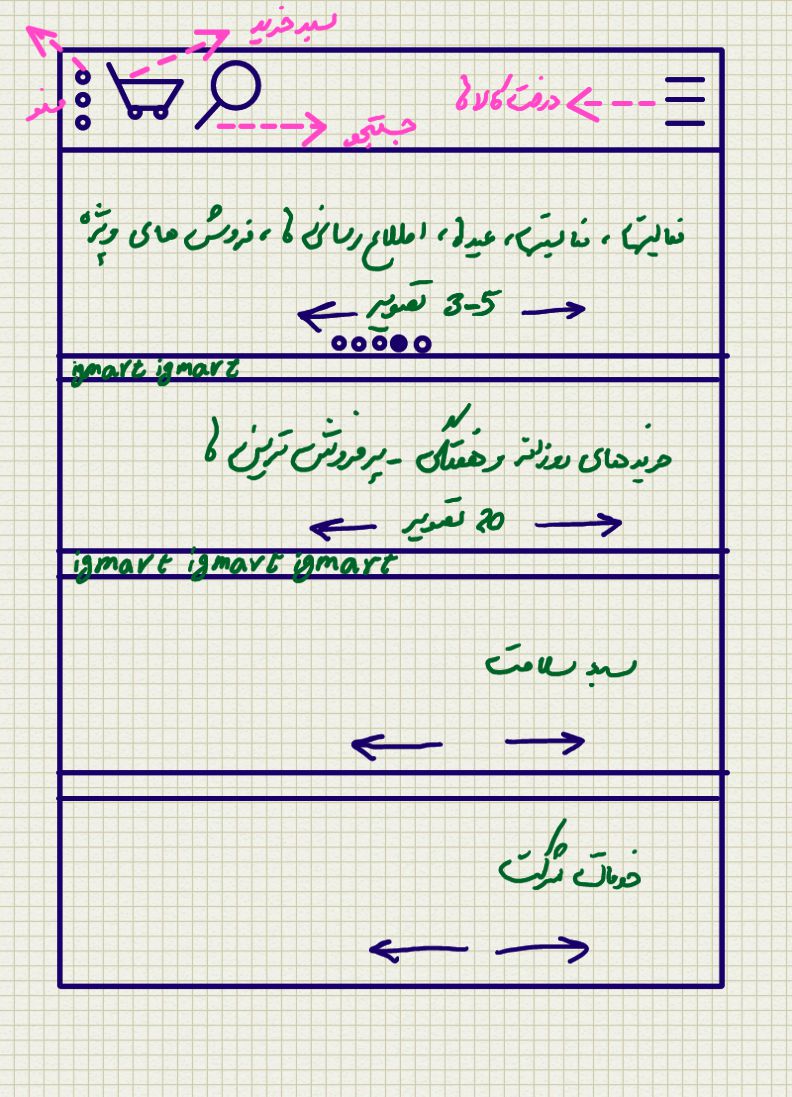 سبد خرید
منو
درخت کالا ها
جستجو
فعالیتها، فعالیتها، عیدها، اطلاع رسانی ها، فروش های ویژه
3-5 تصویر
igmart igmart
خریدهای روزانه و هفتگی - پرفروش ترین ها
20 تصویر
igmart igmart igmart
سبد سلامت
خدمات شرکت